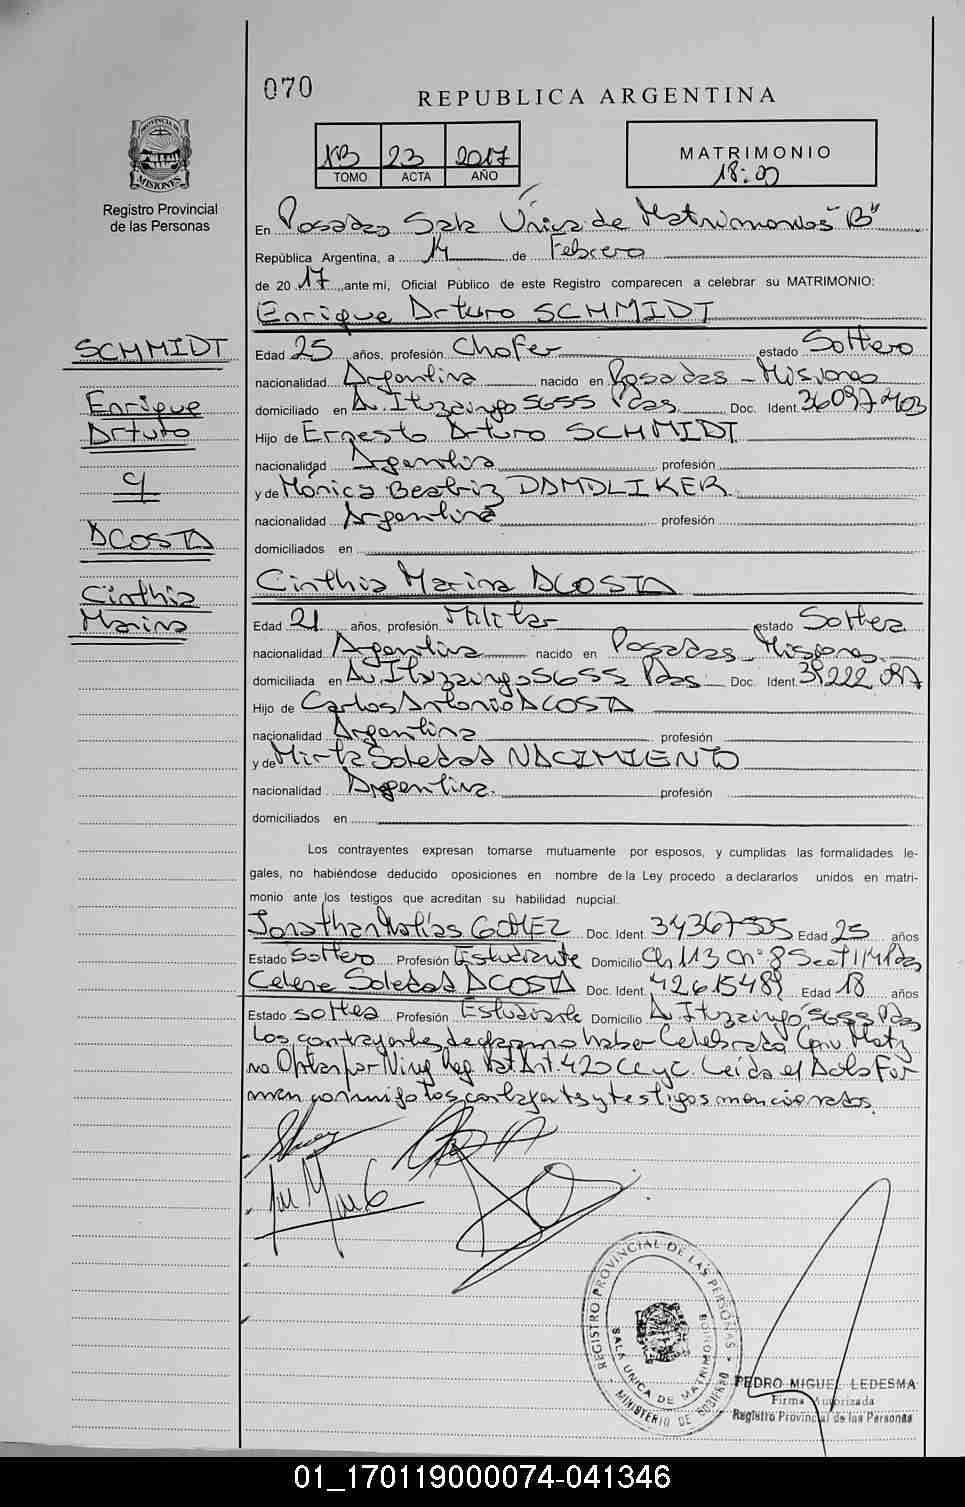 070
REPUBLICA ARGENTINA
1B 23 2017
TOMO ACTA AÑO
MATRIMONIO
18:00
PROVINCIA DE
MISIONES
Registro Provincial
de las Personas
En Posadas Sala Única de Matrimonios "B"
República Argentina, a 14 de Febrero
de 2017, ante mi, Oficial Público de este Registro comparecen a celebrar su MATRIMONIO:
Enrique Arturo SCHMIDT
SCHMIDT
Enrique
Arturo
c/
ACOSTA
Cinthia
Marina
Edad 25 años, profesión Chofer estado Soltero
nacionalidad Argentina nacido en Posadas - Misiones
domiciliado en Av. Ituzaingo 5655 Pdas. Doc. Ident. 36097403
Hijo de Ernesto Arturo SCHMIDT
nacionalidad Argentina profesión
y de Mónica Beatriz DAMALIKER
nacionalidad Argentina profesión
domiciliados en
Cinthia Marina ACOSTA
Edad 21 años, profesión Militar estado Soltera
nacionalidad Argentina nacido en Posadas - Misiones
domiciliada en Av. Ituzaingo 5655 Pdas. Doc. Ident.
Hijo de Carlos Antonio ACOSTA
nacionalidad Argentina profesión
y de Mirta Soledad NACIMIENTO
nacionalidad Argentina. profesión
domiciliados en
Los contrayentes expresan tomarse mutuamente por esposos, y cumplidas las formalidades le-
gales, no habiéndose deducido oposiciones en nombre de la Ley procedo a declararlos unidos en matri-
monio ante los testigos que acreditan su habilidad nupcial.
Jonathan Matías GOMEZ Doc. Ident. 34367505 Edad 25 años
Estado Soltero Profesión Estudiante Domicilio Ch 113 Cn° 8 Secc 1/4 Pdas
Celene Soledad ACOSTA Doc. Ident. 42615489 Edad 18 años
Estado soltera Profesión Estudiante Domicilio Av. Ituzaingo 5655 Pdas
Los contrayentes declaran no haber Celebrado Conv Mat y
no Optan por Ning Reg Pat Art. 420 CCyC. Leída el Acta Fir
man conmigo los contrayentes y testigos mencionados.
REGISTRO PROVINCIAL DE LAS PERSONAS
SALA UNICA DE MATRIMONIOS
MINISTERIO DE GOBIERNO
PEDRO MIGUEL LEDESMA
Firma Autorizada
Registro Provincial de las Personas
01_170119000074-041346